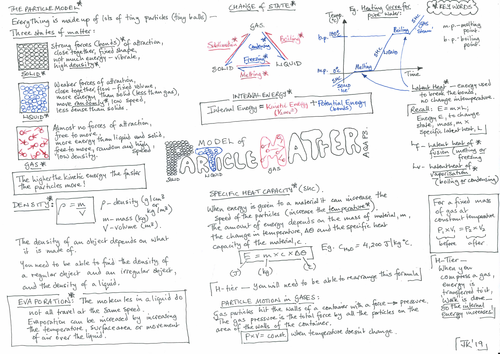 THE PARTICLE MODEL*
Everything is made up of lots of tiny particles (tiny balls)
Three states of matter:
Strong forces (bonds*) of attraction,
close together, fixed shape,
not much energy - vibrate,
high density*
SOLID*
Weaker forces of attraction,
close together, flow - fixed volume,
more energy than solid (less than gas),
move randomly* low speed,
less dense than solid.
LIQUID*
Almost no forces of attraction,
free to move,
more energy than liquid and solid,
free to move, random and high speed,
low density.
GAS*
The higher the kinetic energy the faster
the particles move!
DENSITY:*
ρ = m/V
ρ - density (g/cm³ or kg/m³)
m - mass (kg)
V - volume (m³).
The density of an object depends on what
it is made of.
You need to be able to find the density of
a regular object and an irregular object,
and the density of a liquid.
EVAPORATION: The molecules in a liquid do
not all travel at the same speed.
Evaporation can be increased by increasing
the temperature, surface area or movement
of air over the liquid.
CHANGE OF STATE*
GAS
Sublimation*
Condensing
Freezing*
Boiling*
SOLID
LIQUID
Melting*
INTERNAL ENERGY*
Internal Energy = Kinetic Energy + Potential Energy
(bonds)
MODEL OF
PARTICLE MATTER
SOLID
LIQUID
GAS
SPECIFIC HEAT CAPACITY* (SHC)
When energy is given to a material it can increase the
speed of the particles (increase the temperature*)
The amount of energy depends on the mass of material, m,
the change in temperature, Δθ and the specific heat
capacity of the material, c.
E = m × c × Δθ
(J)
(kg)
Eg. C H₂O = 4,200 J/kg°C.
H-tier - You will need to be able to rearrange this formula!
PARTICLE MOTION in GASES:
Gas particles hit the walls of a container with a force → pressure.
The gas pressure is the total force by all the particles on the
area of the walls of the container.
P×V = const. when temperature doesn't change.
Temp.
Eg. Heating Curve for
pure Water:
b.p. 100°C
m.p. 0°C
Melting
Boiling
LIQUID
Time
*KEYWORDS
m.p. - melting
point.
b.p. - boiling
point.
Latent heat* - Energy used
to break the bonds,
no change in temperature.
Recall: E = m × L
Energy, E, to change
state, mass, m ×
Specific latent heat, L
Lf - latent heat of
fusion (melting or
freezing)
Lv - latent heat of
vaporisation*
(boiling or condensing)
For a fixed
mass of gas
at constant
temperature
P₁×V₁ = P₂×V₂
before after
H-Tier -
When you
compress a gas,
energy is
transferred to it,
Work is done
so the internal
energy increases!
JR '19